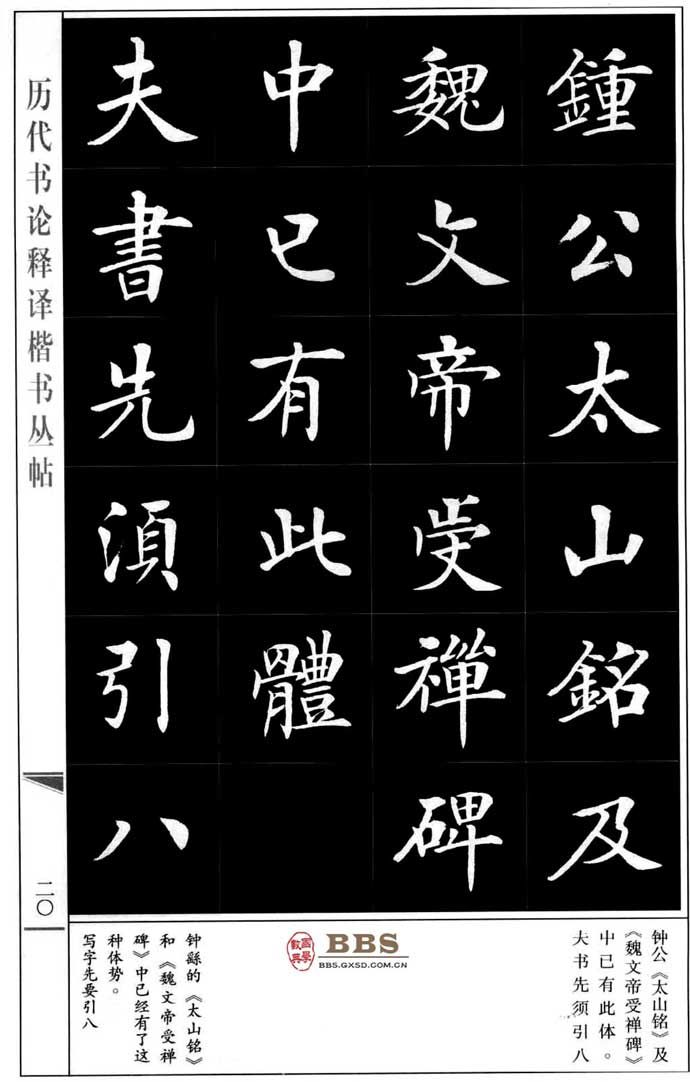 鍾公太山銘及
魏文帝受禪碑
中已有此體
夫書先須引八
历代书论释译楷书丛帖
二〇
钟公《太山铭》及
《魏文帝受禅碑》
中已有此体。
夫书先须引八
BBS
BBS.GXSD.COM.CN
钟繇的《太山铭》
和《魏文帝受禅
碑》中已经有了这
种体势。
写字先要引八